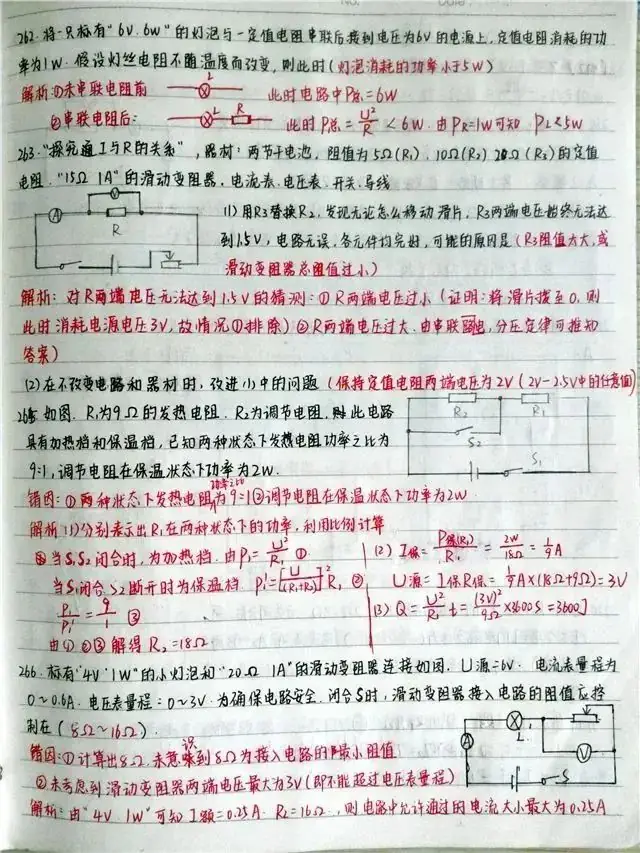 262. 将一只标有"6V 6W"的灯泡与一定值电阻串联后接到电压为6V的电源上,定值电阻消耗的功
率为1W. 假设灯丝电阻不随温度而改变,则此时(灯泡消耗的功率小于5W)
解析:①未串联电阻前 L 此时电路中P总=6W
②串联电阻后: L R 此时P总=U²/R<6W. 由PR=1W可知 PL<5W
263. "探究通I与R的关系",器材:两节干电池,阻值为5Ω(R₁)、10Ω(R₂) 20Ω(R₃)的定值
电阻."15Ω 1A"的滑动变阻器,电流表.电压表.开关.导线
A V R
(1)用R3替换R2,发现无论怎么移动滑片,R3两端电压始终无法达
到1.5V,电路无误,各元件均完好,可能的原因是(R3阻值太大,或
滑动变阻器总阻值过小)
解析:对R两端电压无法达到1.5V的猜测:①R两端电压过小(证明:将滑片拨至0.则
此时消耗电源电压3V,故情况①排除)②R两端电压过大.由串联电,分压定律可推知
答案)
(2)在不改变电路和器材时,改进(1)中的问题(保持定值电阻两端电压为2V(2V-2.5V中的任意值)
如图.R₁为9Ω的发热电阻.R₂为调节电阻,此电路
具有加热档和保温档,已知两种状态下发热电阻功率之比为
9:1,调节电阻在保温状态下功率为2W.
R₂ R₁ S₂ S₁
错因:①两种状态下发热电阻功率之比为9:1②调节电阻在保温状态下功率为2W
解析(1)分别表示出R₁在两种状态下的功率,利用比例计算
当S₁S₂闭合时,为加热档.由P₁=U²/R₁ ①
当S₁闭合S₂断开时为保温档 P₁'=[U/(R₁+R₂)]²R₁ ②
P₁/P₁'=9/1 ③
由①②③解得R₂=18Ω
(2) I保=P保(R₂)/R₁=2W/18Ω=1/9A
U源=I保R保=1/9A×(18Ω+9Ω)=3V
(3) Q=U²/R₁ t=(3V)²/9Ω×3600S=3600J
266. 标有"4V 1W"的小灯泡和"20Ω 1A"的滑动变阻器连接如图.U源=6V. 电流表量程为
0~0.6A.电压表量程=0~3V.为确保电路安全.闭合S时,滑动变阻器接入电路的阻值应控
制在(8Ω~16Ω)
A L V S
错因:①计算出8Ω.未意识到8Ω为接入电路的最小阻值
②未考虑到滑动变阻器两端电压最大为3V(即不能超过电压表量程)
解析:由"4V 1W"可知I额=0.25A. RL=16Ω.,则电路中允许通过的电流大小最大为0.25A